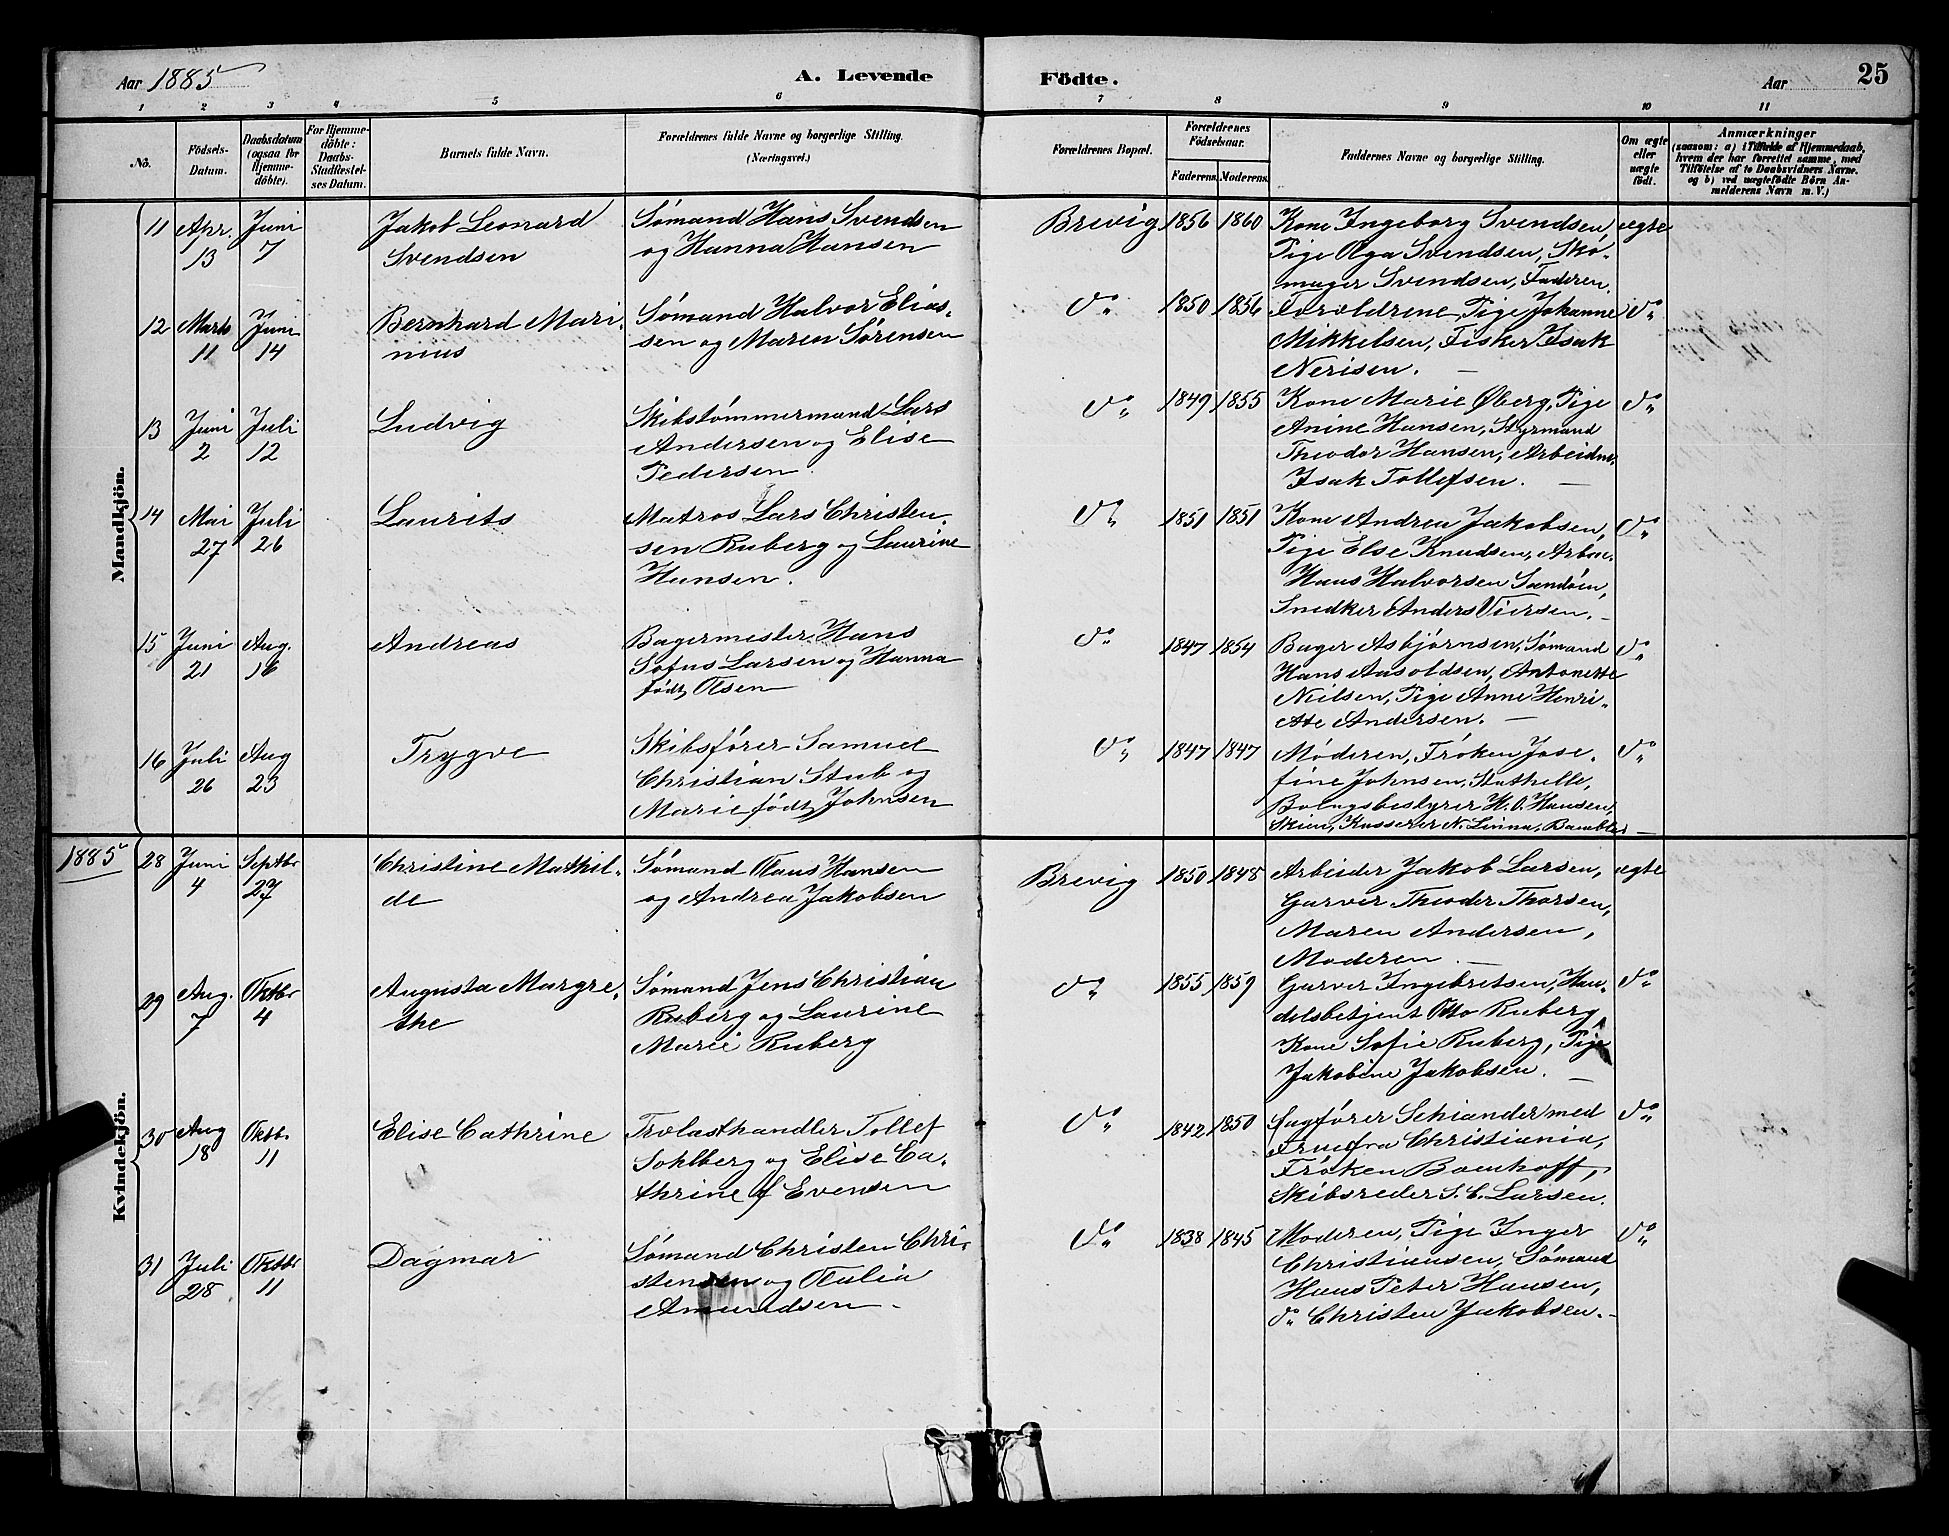 Aar 1885
A. Levende
Födte.
Aar
25
1 2 3 4 5 6 7 8 9 10 11
No.
Födsels-
Datum.
Daabsdatum
(ogsaa for
Hjemme-
döbte).
For Hjemme-
döbte:
Daabs-
Stadfæstel-
ses Datum.
Barnets fulde Navn.
Forældrenes fulde Navne og borgerlige Stilling.
(Næringsvei.)
Forældrenes Bopæl.
Forældrenes
Födselsaar.
Faderens.
Moderens.
Faddernes Navne og borgerlige Stilling.
Om ægte
eller
uægte
födt.
Anmærkninger
(saasom: a) i Tilfælde af Hjemmedaab,
hvem der har forrettet samme, med
Tilföielse af to Daabsvidners Navne.
og b) ved uægtefödte Börn An-
melderens Navn m. V.)
Mandkjön.
11 Apr. 13 Juni 7
Jakob Leonard
Svendsen
Sømand Hans Svendsen
og Hanna Hansen
Brevig 1856 1860
Kone Ingeborg Svendsen,
Pige Olga Svendsen, Sko-
mager Svendsen, Faderen.
ægte
12 Marts 11 Juni 14
Bernhard Mari-
nius
Sømand Halvor Elias-
sen og Maren Sørensen
do 1850 1856
Forældrene, Pige Johanne
Mikkelsen, Fisker Isak
Nerisen. —
do
13 Juni 2 Juli 12
Ludvig
Skibstømmermand Lars
Andersen og Elise
Pedersen.
do 1849 1855
Kone Marie Øberg, Pige
Anine Hansen, Styrmand
Theodor Hansen, Arbeidm.
Isak Tollefsen. —
do
14 Mai 27 Juli 26
Laurits
Matros Lars Christen-
sen Ruberg og Laurine
Hansen.
do 1851 1851
Kone Andrea Jakobsen,
Pige Else Knudsen, Arbm.
Hans Halvorsen Sandøen,
Snedker Anders Viersen. –
do
15 Juni 21 Aug. 16
Andreas
Bagermester Hans
Sofus Larsen og Hanna
født Olsen
do 1847 1854
Bager Asbjørnsen, Sømand
Hans Aasoldsen, Antonette
Nilsen, Pige Anne Henri-
ette Andersen. —
do
16 Juli 26 Aug 23
Trygve
Skibsfører Samuel
Christian Stub og
Marie født Johnsen
do 1847 1847
Moderen, Frøken Jose-
fine Johnsen, Stathelle,
Bolagsbestyrer H. O. Hansen,
Skien, Kasserer N. Linna, Bamble. —
do
1885
Kvindekjön.
28 Juni 4 Septbr 27
Christine Mathil-
de
Sømand Claus Hansen
og Andrea Jakobsen
Brevig 1850 1848
Arbeider Jakob Larsen,
Garver Theoder Thorsen,
Maren Andersen,
Moderen. —
ægte
29 Aug. 7 Oktbr 4
Augusta Margre-
the
Sømand Jens Christian
Ruberg og Laurine
Marie Ruberg
do 1855 1859
Garver Ingebretsen, Han-
delsbetjent Otto Ruberg
Kone Sofie Ruberg, Pige
Jakobine Jakobsen. —
do
30 Aug 18 Oktb. 11
Elise Cathrine
Trælasthandler Tollef
Sohlberg og Elise Ca-
thrine f Evensen
do 1842 1850
Sagfører Schiander med
Frue fra Christiania,
Frøken Boenhoff,
Skibsreder S. C. Larsen.
do
31 Juli 28 Oktbr 11
Dagmar
Sømand Christen Chri-
stensen og Olulia
Amundsen.
do 1838 1845
Moderen, Pige Inger
Christiansen, Sømand
Hans Peter Hansen,
do Christen Jakobsen. –
do